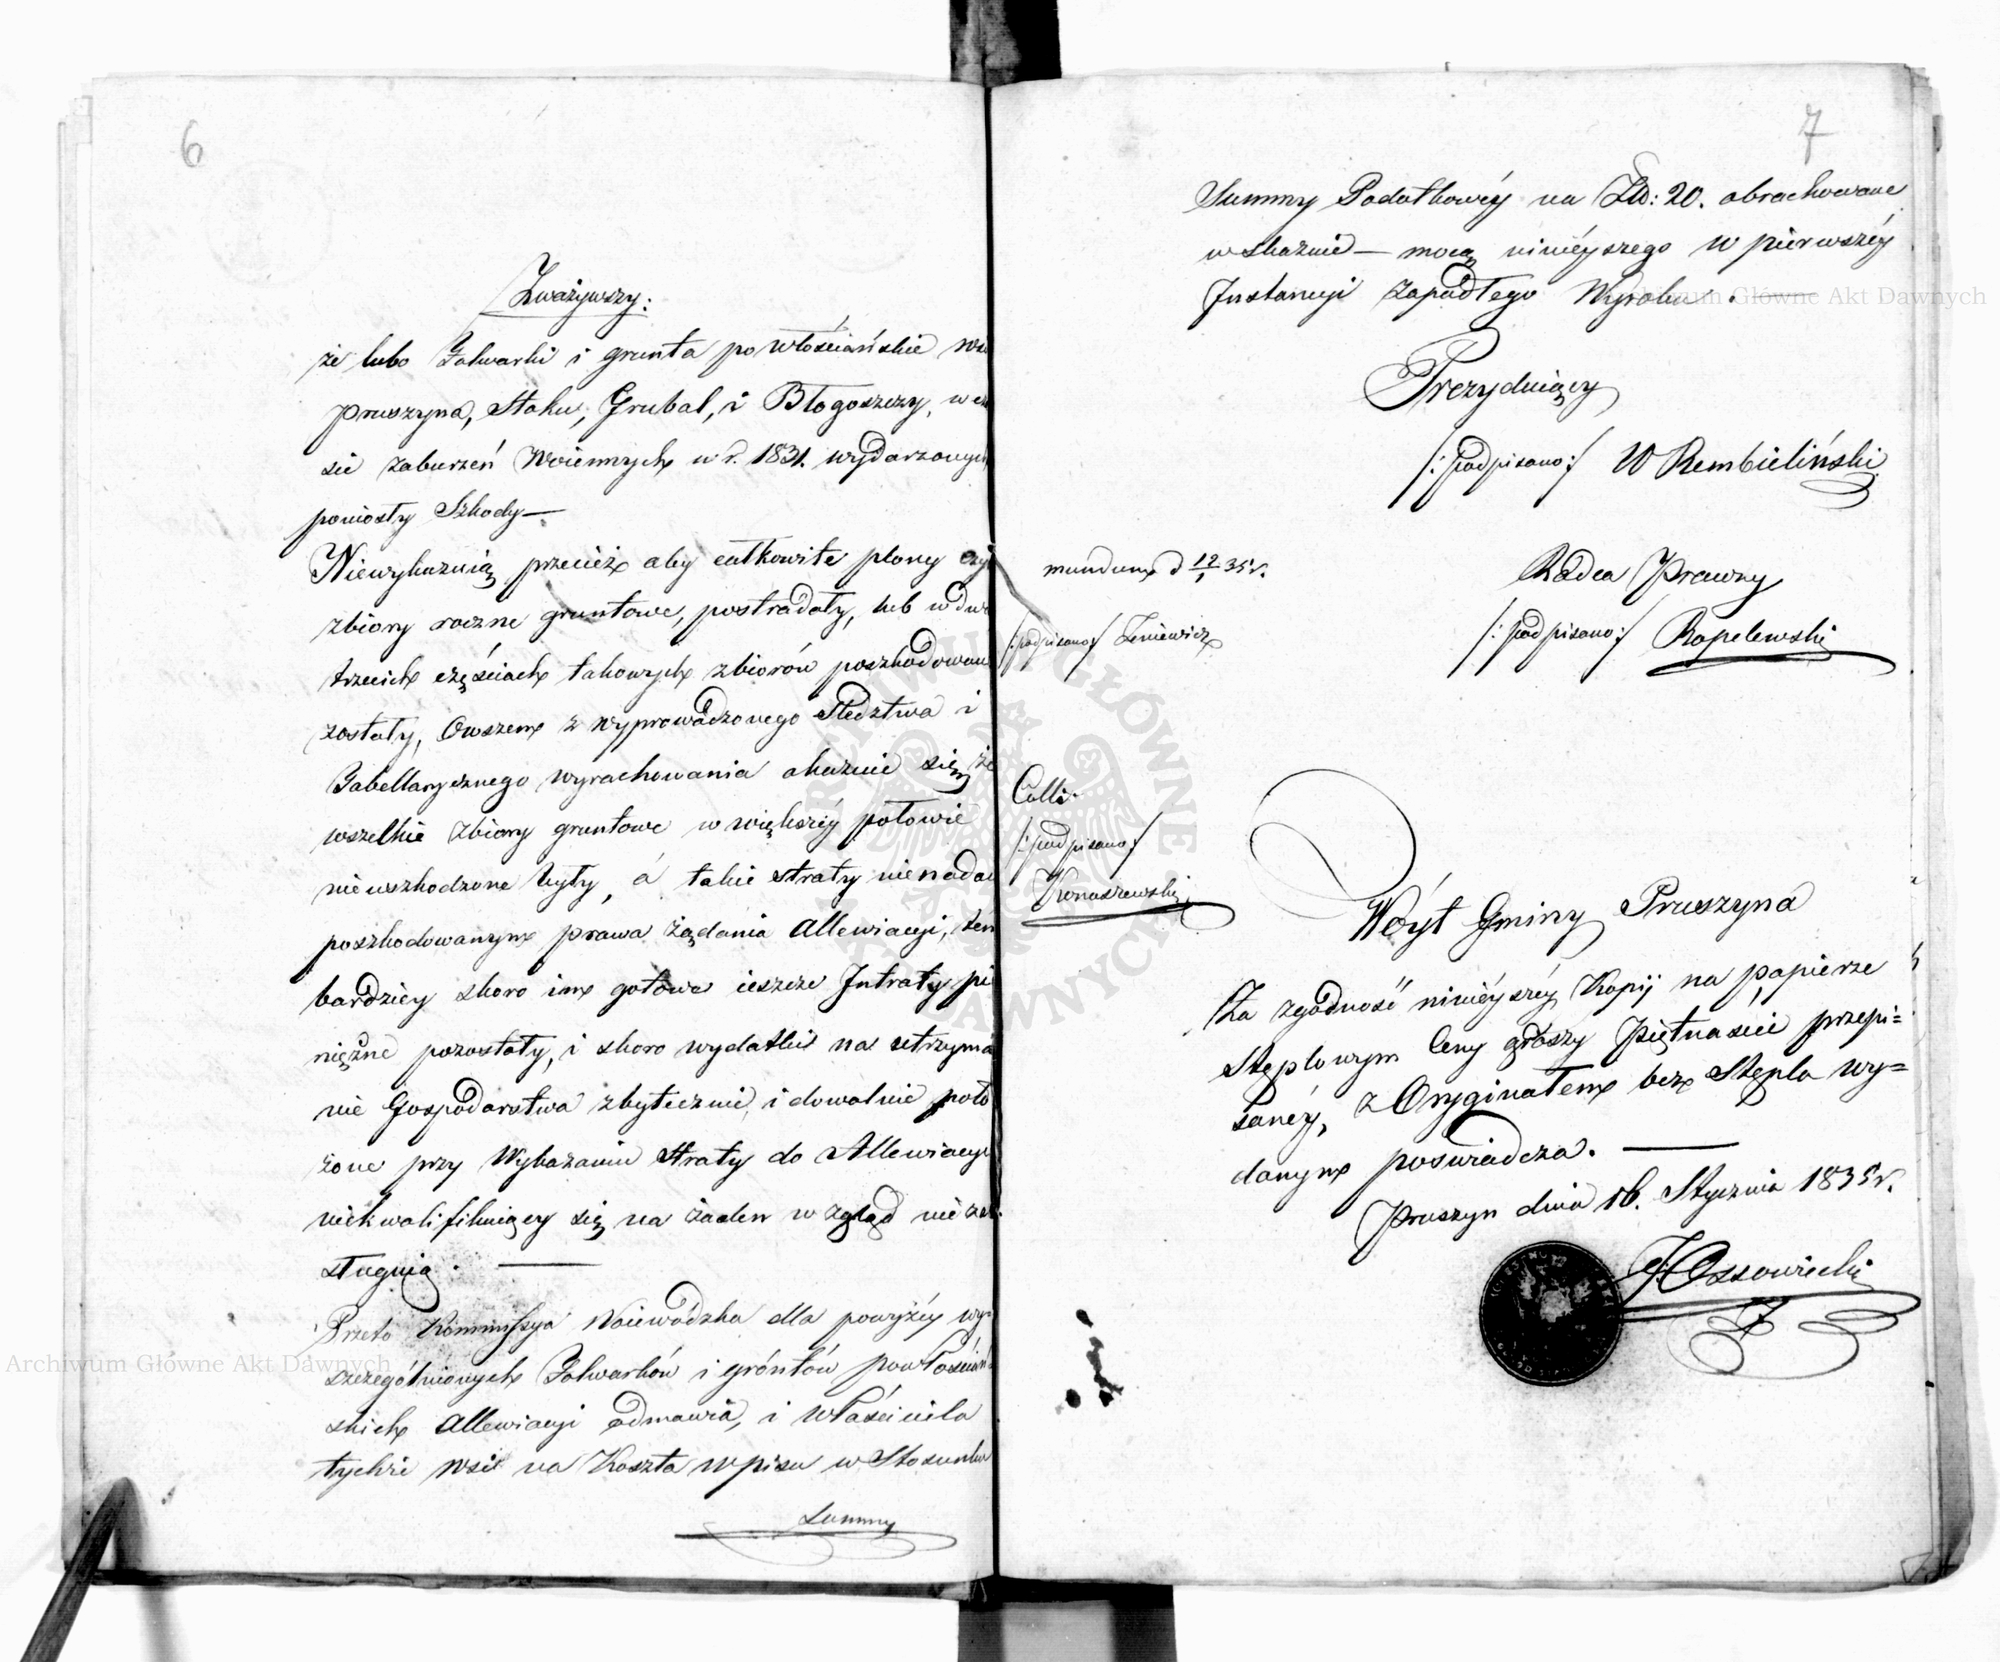 6
Zważywszy:
że lubo Folwarki i grunta powłościańskie wsi
Pruszyna, Stoku, Grubal, i Błogoszczy, w cza
sie zaburzeń Woiennych w r. 1831. wydarzonych
poniosły Szkody —
Niewykazuią przecież aby całkowite plony czyli
zbiory roczne gruntowe, postradały, lub w dwu
trzecich częściach takowych zbiorów poszkodowane
zostały, Owszem z wyprowadzonego Sledztwa i
Tabellarycznego wyrachowania okazuie się, że
wszelkie zbiory gruntowe w większéy połowie
nieuszkodzone były, á takie straty nienadaią
poszkodowanym prawa żądania Allewiacyi, tem
bardziey skoro im gotowe ieszcze Intraty pie
niężne pozostały, i skoro wydatki na utrzyma
nie Gospodarstwa zbytecznie, i dowolnie poło
żone przy Wykazaniu Straty do Allewiacyi
niekwalifikuiącey się, na żaden wzgląd nie za
sługuią. —
Przeto Kommissya Woiewódzka dla powyżéy wy=
szczególnionych Folwarków i gróntów powłościań
skich Allewiacyi odmawia, i właściciela
tychże wsi na Koszta wpisu w Stosunku
Summy
7
Summy Podatkowéy na Złp: 20. obrachowane
wskazuie — mocą ninieyszego w pierwszéy
Instancyi zapadłego Wyroku. —
Prezyduiący
/: podpisano :/ W Rembieliński
mundum d 12/1 35 r.
Radca Prawny
/: podpisano :/ Zeniewicz
/: podpisano :/ Ropelewski
Coll:
/: podpisano :/
Konaszewski
Wóyt Gminy Pruszyna
Za zgódność ninieyszéy Kopij na papierze
Stęplowym Ceny groszy Piętnaście przepi=
sanéy, z Oryginałem bez Stępla wy=
danym poswiadcza. —
Pruszyn dnia 16. Stycznia 1835 r.
J Ossowiecki
Archiwum Główne Akt Dawnych
Archiwum Główne Akt Dawnych
ARCHIWUM GŁÓWNE AKT DAWNYCH